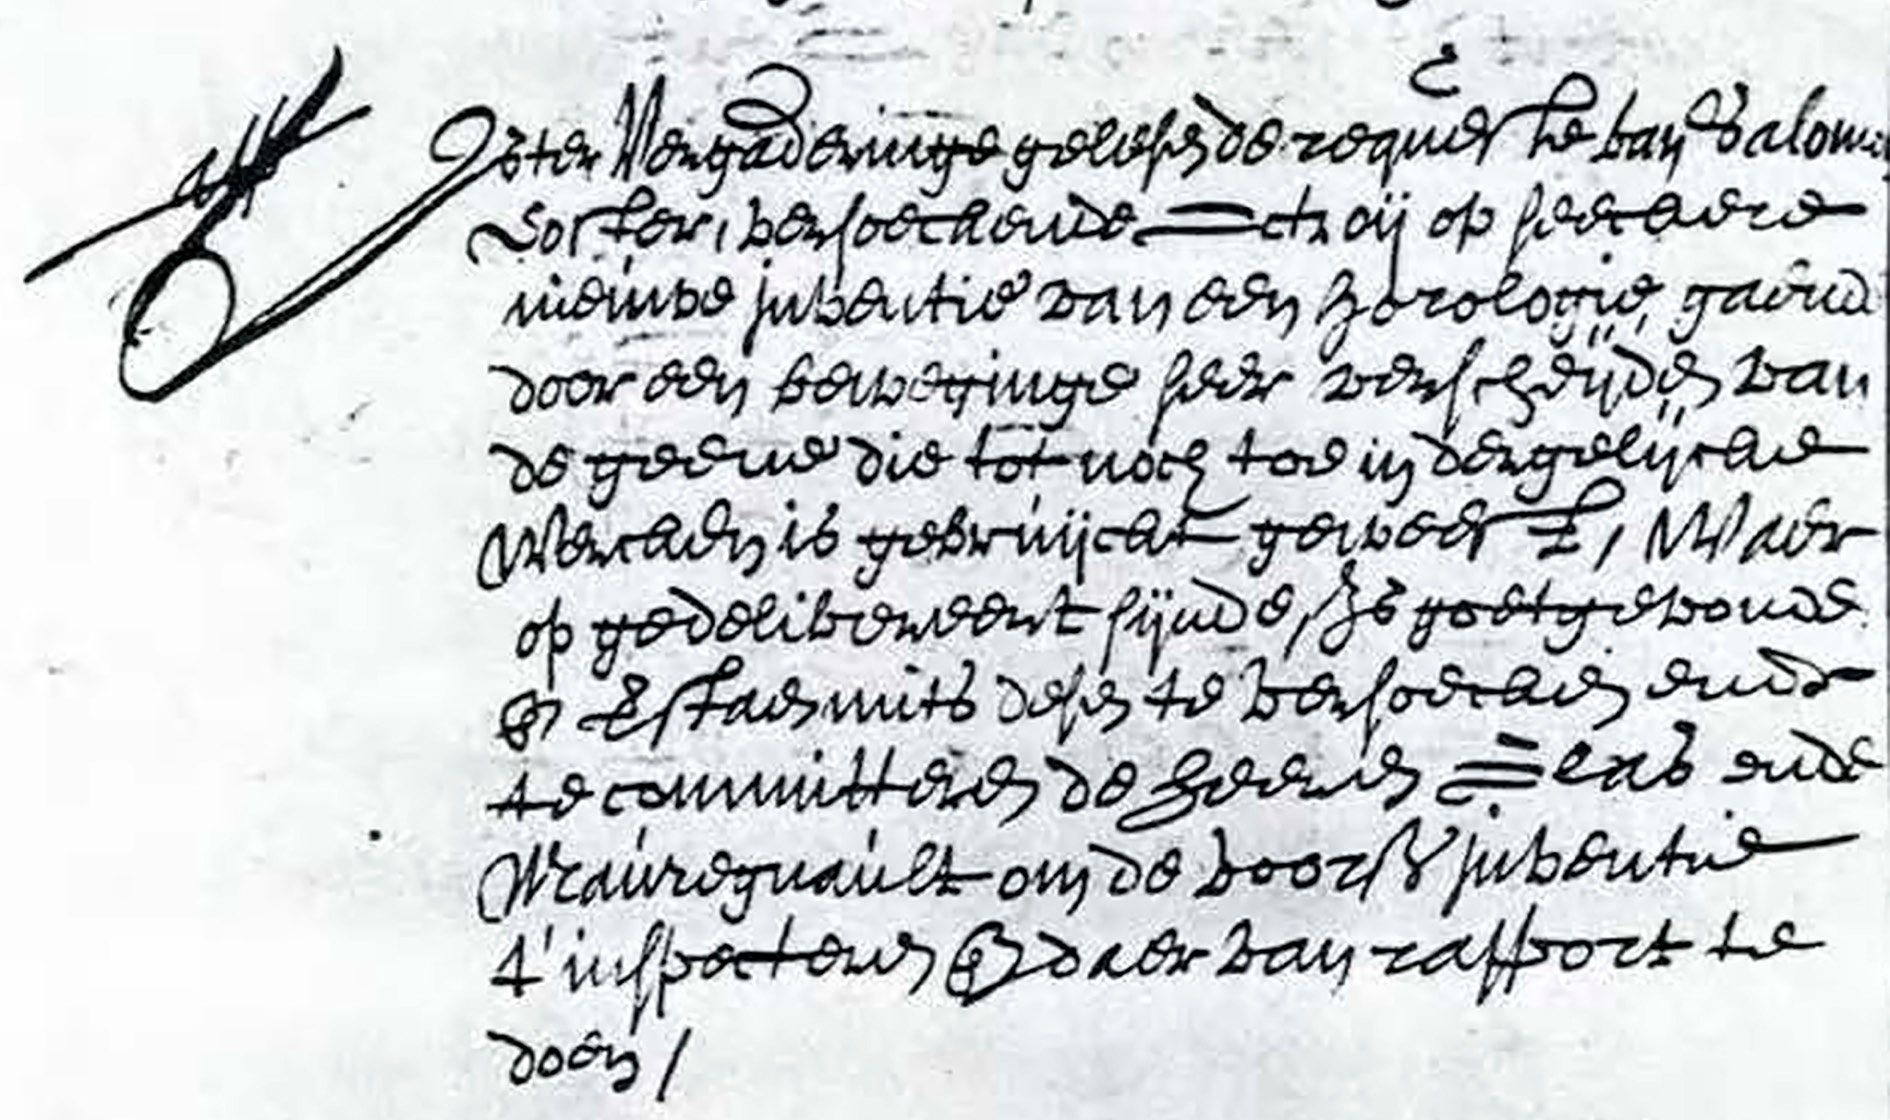 Is ter Vergaderinge gelesen de requeste van Salomo
Coster, versoeckende Octroij op seeckere
nieuwe inventie van een Horologie, gaende
door een beweginge seer verscheijden van
de geene die tot noch toe in dergelijcke
Wercken is gebruijckt geweest, Waer
op gedelibereert sijnde, Is goetgevonde
en verstaen mits desen te versoecken ende
te committeren de heeren ende
Mauregnault om de voors. inventie
t'inspecteren en daer van rapport te
doen /